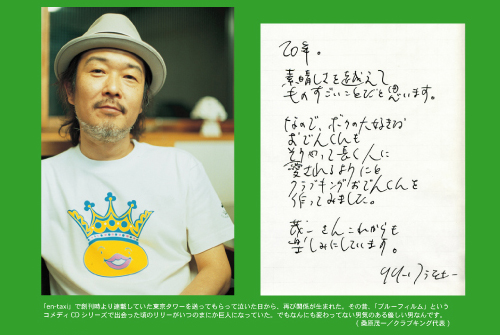 20年。
素晴しさを越えて
ものすごいことだと思います。
なので、ボクの大好きな
おでんくんも
そうやって長く人に
愛されるようにと
クラブキングおでんくんを
作ってみました。
茂一さんこれからも
楽しみにしています。
リリー・フランキー
「en-taxi」で創刊時より連載していた東京タワーを送ってもらって泣いた日から、再び関係が生まれた。その昔、「ブルーフィルム」という
コメディCDシリーズで出会った頃のリリーがいつのまにか巨人になっていた。でもなんにも変わってない勇気のある優しい男なんです。
（桑原茂一／クラブキング代表）